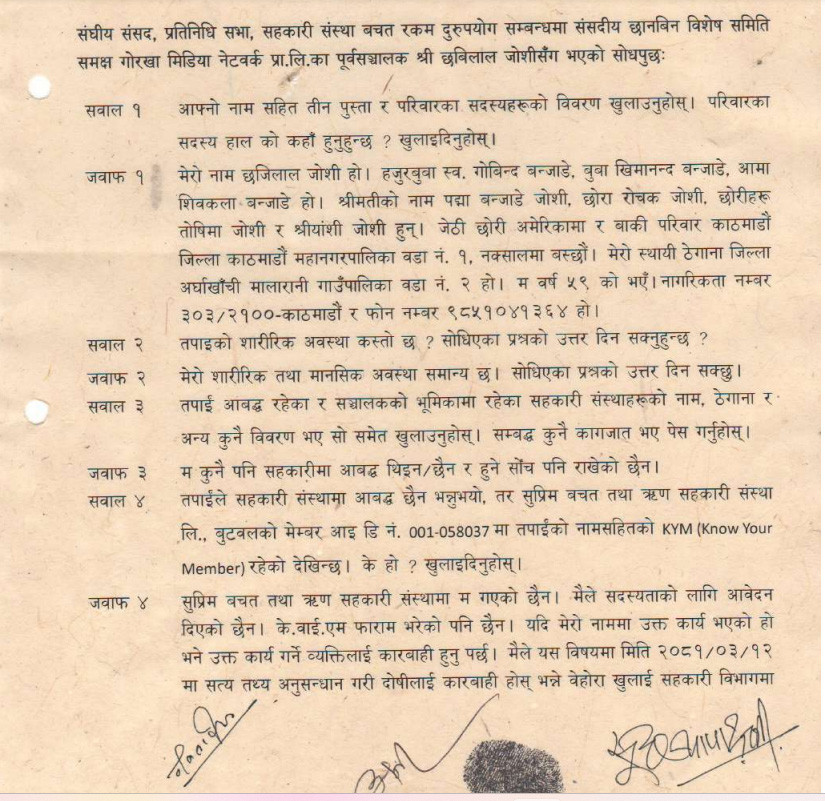 संघीय संसद, प्रतिनिधि सभा, सहकारी संस्था बचत रकम दुरुपयोग सम्बन्धमा संसदीय छानबिन विशेष समिति
समक्ष गोरखा मिडिया नेटवर्क प्रा.लि.का पूर्वसञ्चालक श्री छबिलाल जोशीसँग भएको सोधपुछः
सवाल १ आफ्नो नाम सहित तीन पुस्ता र परिवारका सदस्यहरूको विवरण खुलाउनुहोस्। परिवारका
सदस्य हाल को कहाँ हुनुहुन्छ ? खुलाइदिनुहोस्।
जवाफ १ मेरो नाम छजिलाल जोशी हो। हजुरबुवा स्व. गोबिन्द बन्जाडे, बुवा खिमानन्द बन्जाडे, आमा
शिवकला बन्जाडे हो। श्रीमतीको नाम पद्मा बन्जाडे जोशी, छोरा रोचक जोशी, छोरीहरू
तोषिमा जोशी र श्रीयांशी जोशी हुन्। जेठी छोरी अमेरिकामा र बाकी परिवार काठमाडौं
जिल्ला काठमाडौं महानगरपालिका वडा नं. १, नक्सालमा बस्छौं। मेरो स्थायी ठेगाना जिल्ला
अर्घाखाँची मालारानी गाउँपालिका वडा नं. २ हो। म वर्ष ५९ को भएँ। नागरिकता नम्बर
३०३/२१००-काठमाडौं र फोन नम्बर ९८५१०४१३६४ हो।
सवाल २ तपाइको शारीरिक अवस्था कस्तो छ ? सोधिएका प्रश्नको उत्तर दिन सक्नुहुन्छ ?
जवाफ २ मेरो शारीरिक तथा मानसिक अवस्था समान्य छ। सोधिएका प्रश्नको उत्तर दिन सक्छु।
सवाल ३ तपाईं आबद्ध रहेका र सञ्चालकको भूमिकामा रहेका सहकारी संस्थाहरूको नाम, ठेगाना र
अन्य कुनै विवरण भए सो समेत खुलाउनुहोस्। सम्बद्ध कुनै कागजात भए पेस गर्नुहोस्।
जवाफ ३ म कुनै पनि सहकारीमा आबद्ध थिइन/छैन र हुने सोंच पनि राखेको छैन।
सवाल ४ तपाईंले सहकारी संस्थामा आबद्ध छैन भन्नुभयो, तर सुप्रिम बचत तथा ऋण सहकारी संस्था
लि., बुटवलको मेम्बर आइ डि नं. 001-058037 मा तपाईंको नामसहितको KYM (Know Your
Member) रहेको देखिन्छ। के हो ? खुलाइदिनुहोस्।
जवाफ ४ सुप्रिम बचत तथा ऋण सहकारी संस्थामा म गएको छैन। मैले सदस्यताको लागि आवेदन
दिएको छैन। के.वाई.एम फाराम भरेको पनि छैन। यदि मेरो नाममा उक्त कार्य भएको हो
भने उक्त कार्य गर्ने व्यक्तिलाई कारबाही हुनु पर्छ। मैले यस विषयमा मिति २०८१/०३/१२
मा सत्य तथ्य अनुसन्धान गरी दोषीलाई कारबाही होस् भन्ने वेहोरा खुलाई सहकारी विभागमा